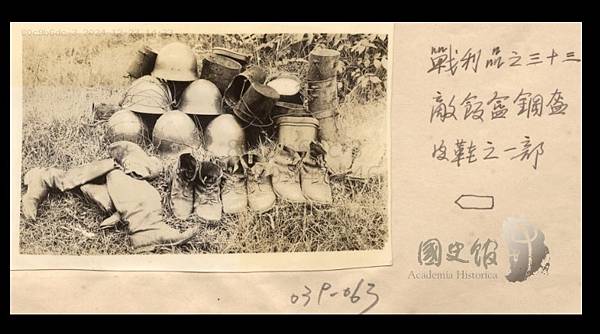 戰利品之三十三
敵飯盒鋼盔
皮鞋之一部
國史館
Academia Historica
039-063